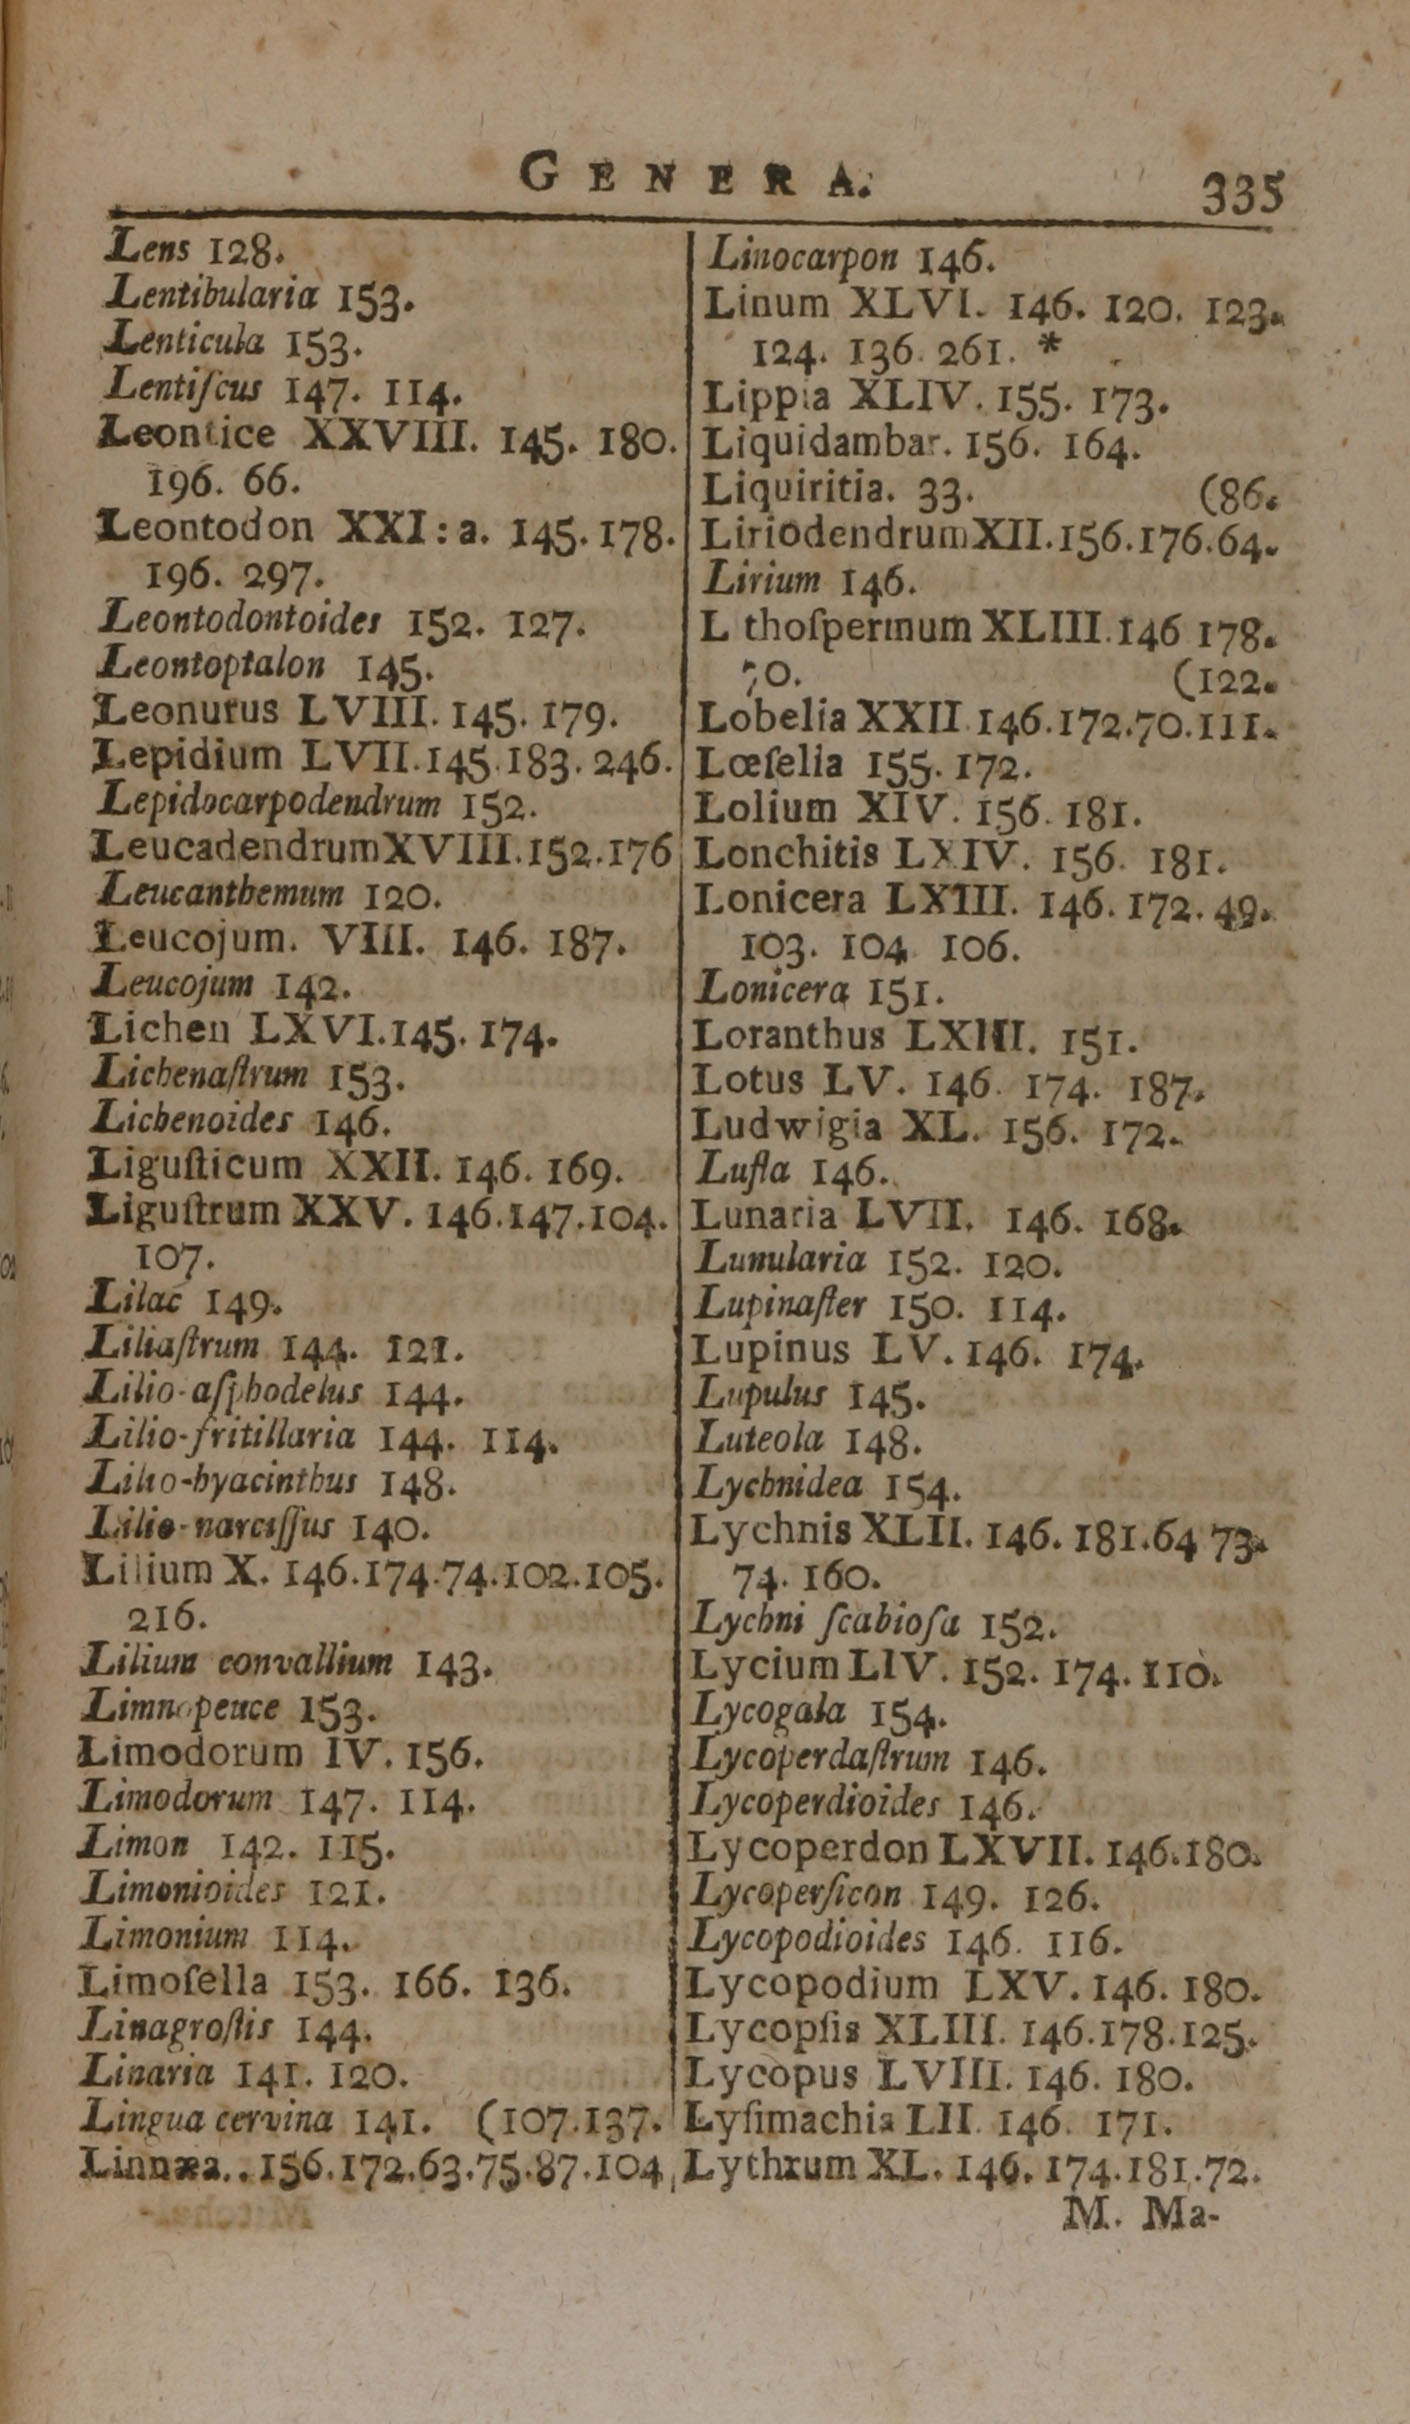 GENERA. 335
Lens 128.
Lentibularia 153.
Lenticula 153.
Lentiſcus 147. 114.
Leontice XXVIII. 145. 180.
196. 66.
Leontodon XXI: a. 145. 178.
196. 297.
Leontodontoides 152. 127.
Leontoptalon 145.
Leonurus LVIII. 145. 179.
Lepidium LVII. 145. 183. 246.
Lepidocarpodendrum 152.
Leucadendrum XVIII. 152. 176
Leucanthemum 120.
Leucojum. VIII. 146. 187.
Leucojum 142.
Lichen LXVI. 145. 174.
Lichenaſtrum 153.
Lichenoides 146.
Liguſticum XXII. 146. 169.
Liguſtrum XXV. 146. 147. 104.
107.
Lilac 149.
Liliaſtrum 144. 121.
Lilio-aſphodelus 144.
Lilio-fritillaria 144. 114.
Lilio-hyacinthus 148.
Lilio-narciſſus 140.
Lilium X. 146. 174. 74. 102. 105.
216.
Lilium convallium 143.
Limnopeuce 153.
Limodorum IV. 156.
Limodorum 147. 114.
Limon 142. 115.
Limonioides 121.
Limonium 114.
Limoſella 153. 166. 136.
Linagroſtis 144.
Linaria 141. 120.
Lingua cervina 141. (107. 137.
Linnæa. . 156. 172. 63. 75. 87. 104
Linocarpon 146.
Linum XLVI. 146. 120. 123.
124. 136. 261. *
Lippia XLIV. 155. 173.
Liquidambar. 156. 164.
Liquiritia. 33. (86.
Liriodendrum XII. 156. 176. 64.
Lirium 146.
L thoſpermum XLIII. 146 178.
70. (122.
Lobelia XXII. 146. 172. 70. 111.
Lœſelia 155. 172.
Lolium XIV. 156. 181.
Lonchitis LXIV. 156. 181.
Lonicera LXIII. 146. 172. 49.
103. 104. 106.
Lonicera 151.
Loranthus LXIII. 151.
Lotus LV. 146. 174. 187.
Ludwigia XL. 156. 172.
Lufla 146.
Lunaria LVII. 146. 168.
Lunularia 152. 120.
Lupinaſter 150. 114.
Lupinus LV. 146. 174.
Lupulus 145.
Luteola 148.
Lychnidea 154.
Lychnis XLII. 146. 181. 64 73.
74. 160.
Lychni ſcabioſa 152.
Lycium LIV. 152. 174. 110.
Lycogala 154.
Lycoperdaſtrum 146.
Lycoperdioides 146.
Lycoperdon LXVII. 146. 180.
Lycoperſicon 149. 126.
Lycopodioides 146. 116.
Lycopodium LXV. 146. 180.
Lycopſis XLIII. 146. 178. 125.
Lycopus LVIII. 146. 180.
Lyſimachia LII. 146. 171.
Lythrum XL. 146. 174. 181. 72.
M. Ma-